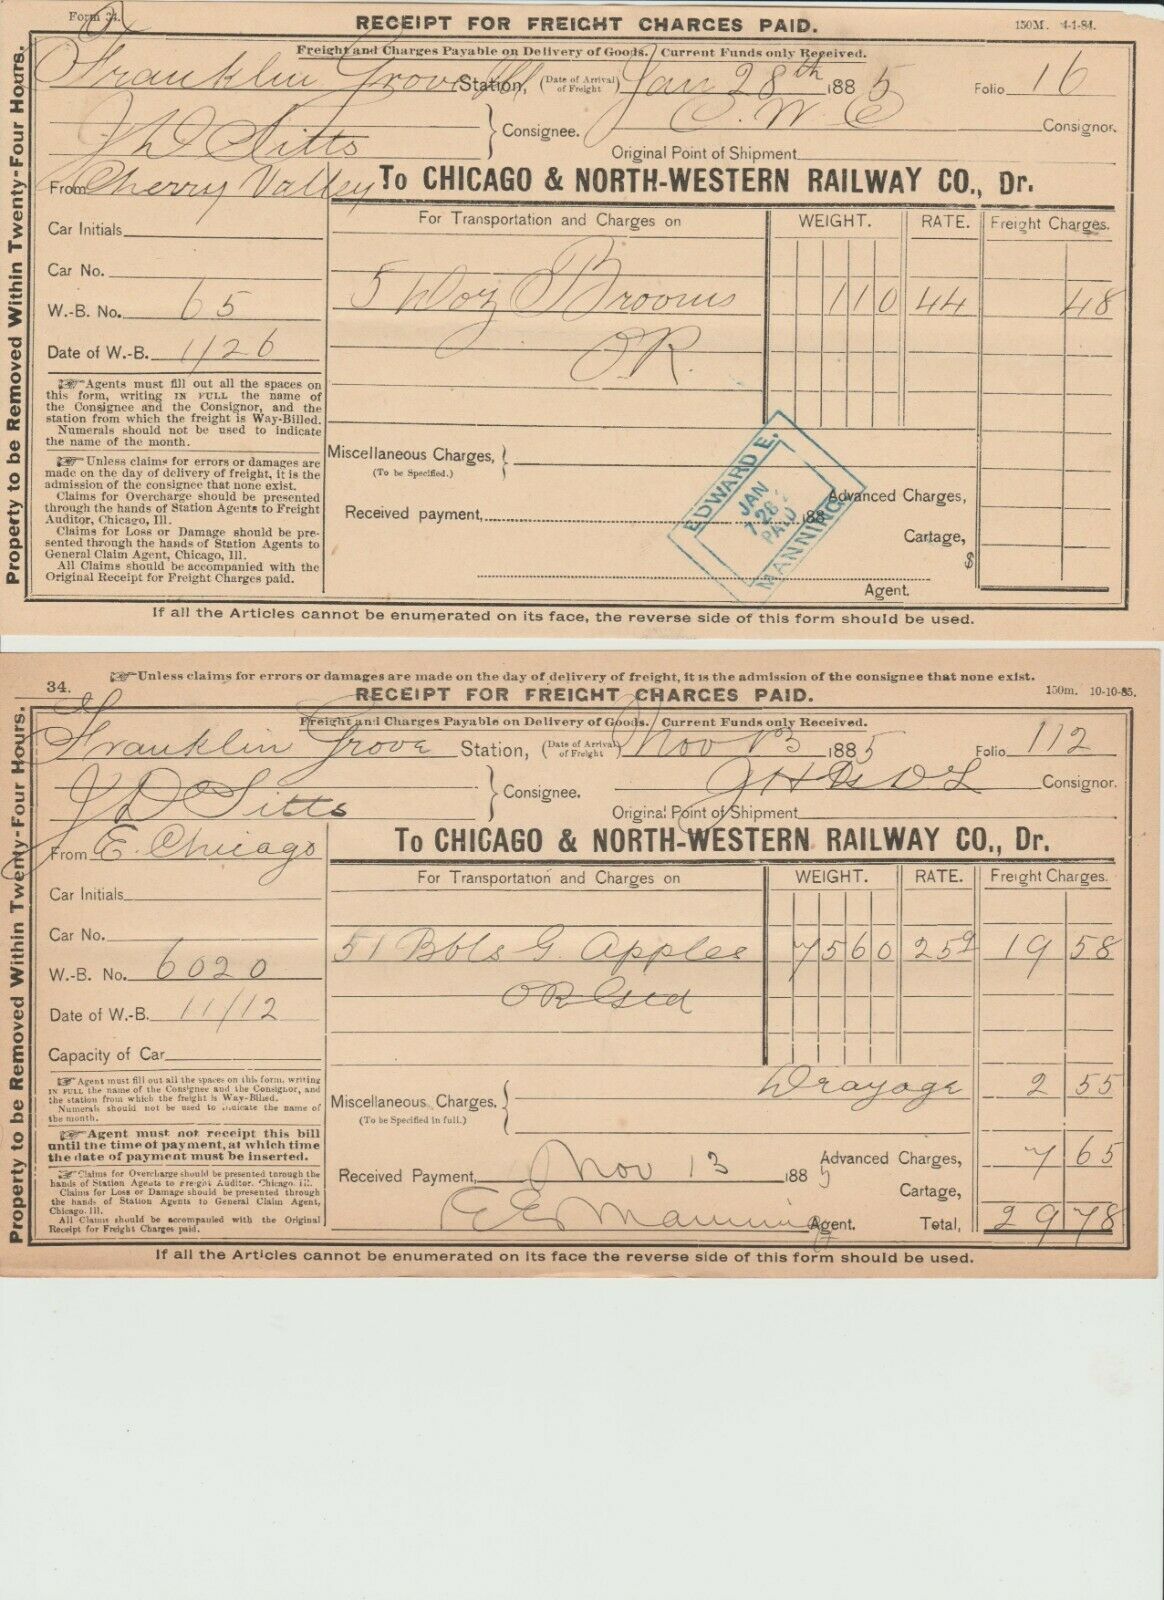 Form 34.
RECEIPT FOR FREIGHT CHARGES PAID.
150M. 4-1-84.
Freight and Charges Payable on Delivery of Goods. Current Funds only Received.
Franklin Grove Ill Station, (Date of Arrival of Freight) Jan 28th 1885 Folio 16
J D Sitts } Consignee. C. W. C Consignor.
Original Point of Shipment
From Cherry Valley To CHICAGO & NORTH-WESTERN RAILWAY CO., Dr.
Car Initials
For Transportation and Charges on WEIGHT. RATE. Freight Charges.
Car No.
W.-B. No. 65
5 Doz Brooms 110 44 48
Date of W.-B. 1/26
O.R.
Agents must fill out all the spaces on
this form, writing IN FULL the name of
the Consignee and the Consignor, and the
station from which the freight is Way-Billed.
Numerals should not be used to indicate
the name of the month.
Unless claims for errors or damages are
made on the day of delivery of freight, it is the
admission of the consignee that none exist.
Claims for Overcharge should be presented
through the hands of Station Agents to Freight
Auditor, Chicago, Ill.
Claims for Loss or Damage should be pre-
sented through the hands of Station Agents to
General Claim Agent, Chicago, Ill.
All Claims should be accompanied with the
Original Receipt for Freight Charges paid.
Miscellaneous Charges, }
(To be Specified.)
Received payment, 188
Advanced Charges,
Cartage,
$
Agent.
EDWARD E.
JAN
28
PAID
MANNING
If all the Articles cannot be enumerated on its face, the reverse side of this form should be used.
Property to be Removed Within Twenty-Four Hours.
Unless claims for errors or damages are made on the day of delivery of freight, it is the admission of the consignee that none exist.
34.
RECEIPT FOR FREIGHT CHARGES PAID.
150m. 10-10-85.
Freight and Charges Payable on Delivery of Goods. Current Funds only Received.
Franklin Grove Station, (Date of Arrival of Freight) Nov 13 1885 Folio 112
J D Sitts } Consignee. Consignor.
Original Point of Shipment
From E. Chicago To CHICAGO & NORTH-WESTERN RAILWAY CO., Dr.
Car Initials
For Transportation and Charges on WEIGHT. RATE. Freight Charges.
Car No.
51 Bbls G. Apples 7560 25 19 58
W.-B. No. 6020
O R
Date of W.-B. 11/12
Capacity of Car
Agent must fill out all the spaces on this form, writing
IN FULL the name of the Consignee and the Consignor, and
the station from which the freight is Way-Billed.
Numerals should not be used to indicate the name of
the month.
Agent must not receipt this bill
until the time of payment, at which time
the date of payment must be inserted.
Claims for Overcharge should be presented through the
hands of Station Agents to Freight Auditor, Chicago, Ill.
Claims for Loss or Damage should be presented through
the hands of Station Agents to General Claim Agent,
Chicago, Ill.
All Claims should be accompanied with the Original
Receipt for Freight Charges paid.
Drayage 2 55
Miscellaneous Charges. {
(To be Specified in full.)
Received Payment, Nov 13 1885
Advanced Charges, 7 65
Cartage,
E E Manning Agent. Total, 29 78
If all the Articles cannot be enumerated on its face the reverse side of this form should be used.
Property to be Removed Within Twenty-Four Hours.